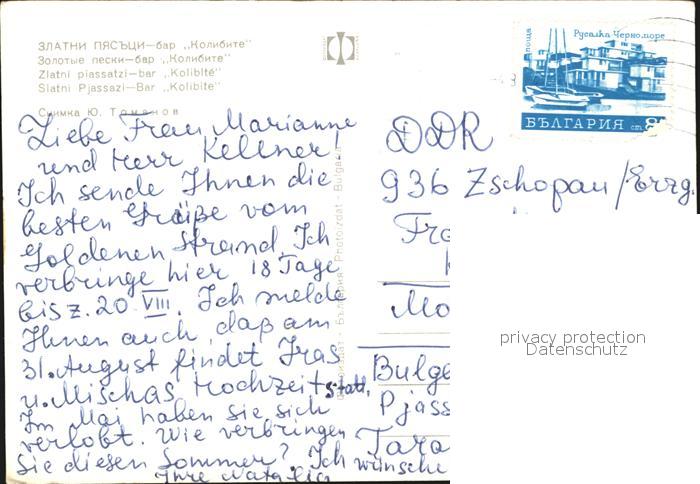 ЗЛАТНИ ПЯСЪЦИ—бар „Колибите"
Золотые пески—бар „Колибите"
Zlatni piassatzi—Bar „Kolibité"
Slatni Pjassazi—Bar „Kolibite"
Снимка Ю. Томанов
Liebe Frau Marianne
und Herr Kellner!
Ich sende Ihnen die
besten Grüße vom
Goldenen Strand. Ich
verbringe hier 18 Tage
bis z. 20 VIII. Ich melde
Ihnen auch, daß am
31. August findet Iras
u. Mischas Hochzeit statt.
Im Mai haben sie sich
verlobt. Wie verbringen
Sie diesen Sommer? Ich wünsche
Ihre
поща
Русалка Черноморе
БЪЛГАРИЯ ст. 8
DDR
936 Zschopau/Erzg.
Fra
Mo
Bulga
Pjass
privacy protection
Datenschutz